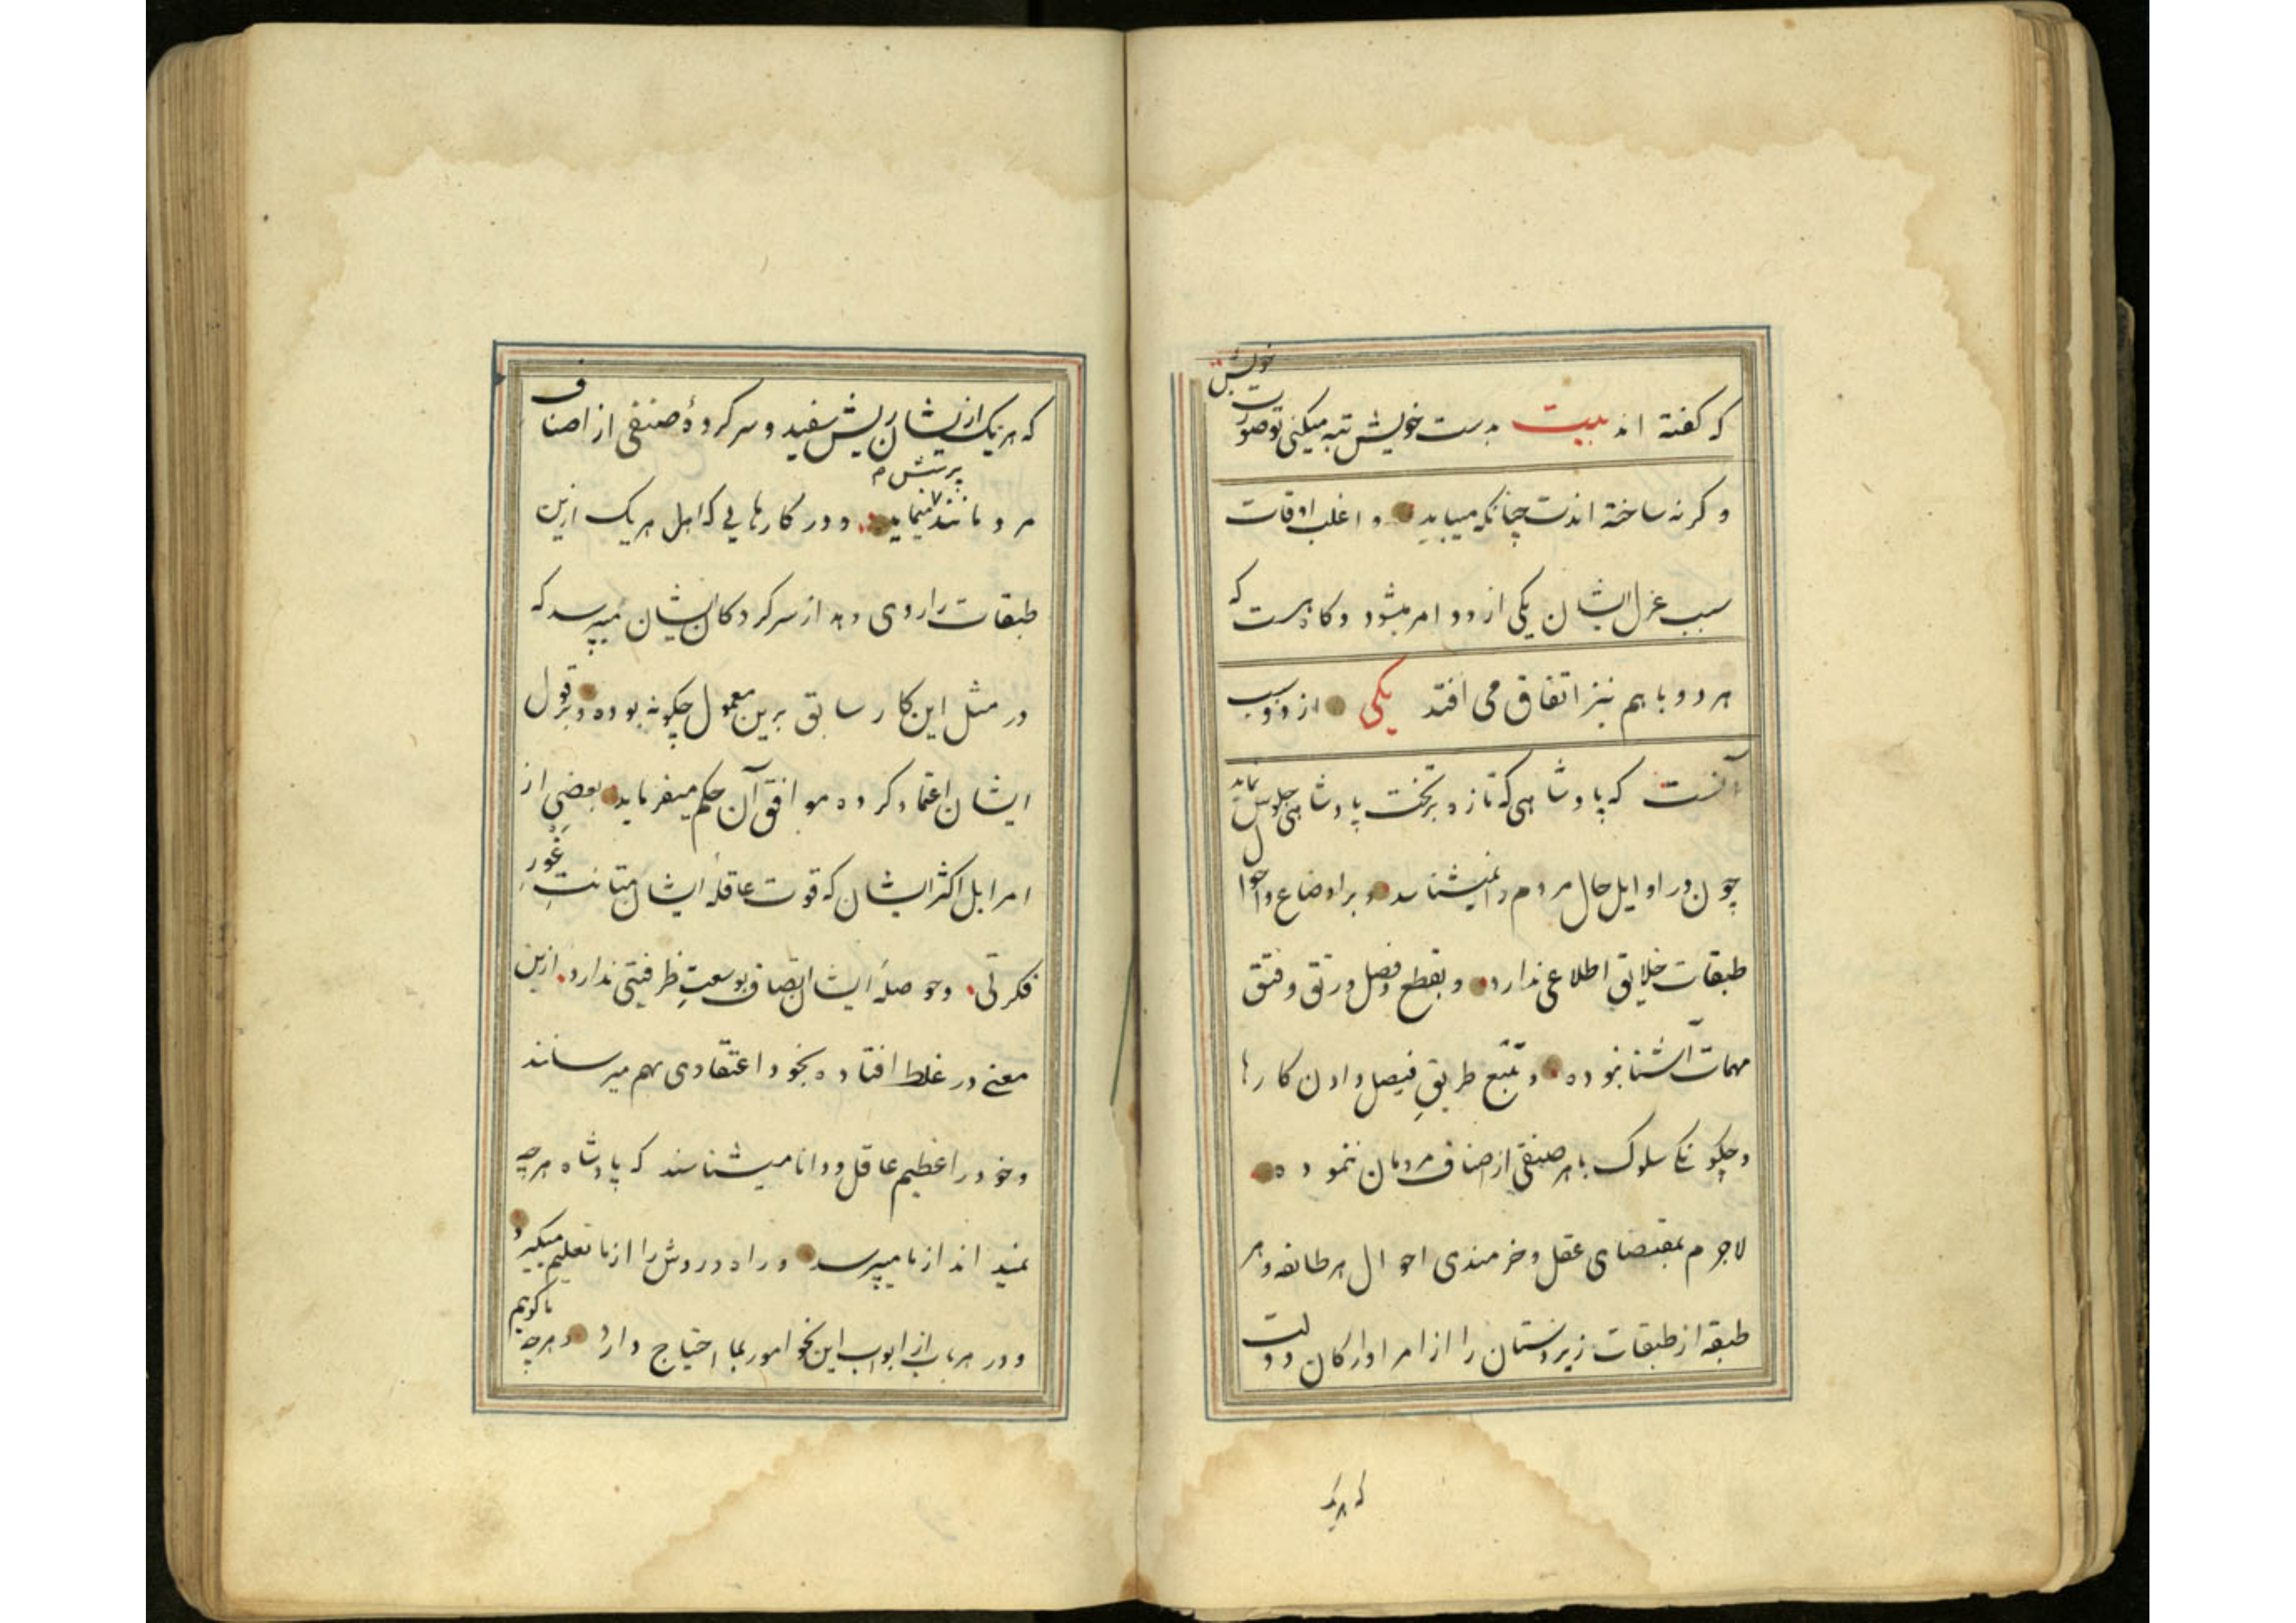 که گفته اند بیت بدست خویش تبه میکنی تو صورت خویش
و کرنه ساخته اندت چنانکه میباید و اغلب اوقات
سبب عزل ایشان یکی از دو امر میشود و کاه هست که
هر دو با هم نیز اتفاق می افتد یکی از دو سبب
آنست که پادشاهی که تازه بر تخت پادشاهی جلوس نماید
چون در اوایل حال مردم را نمیشناسد و بر اوضاع و احوال
طبقات خلایق اطلاعی ندارد و بقطع و فصل و رتق و فتق
مهمات آشنا نبوده و تتبع طریقِ فیصل دادن کارها
و چکونکی سلوک با هر صنفی از اصناف مردمان ننموده
لاجرم بمقتضای عقل و خرمندی احوال هر طائفه و هر
طبقه از طبقات زیردستان را از امرا و ارکان دولت
که هریک
که هریک ازیشان ریش سفید و سرکردهٔ صنفی از اصناف
مردمانند پرسش مینماید و در کارهایی که اهل هریک ازین
طبقات را روی دهد از سرکردکان ایشان میپرسد که
در مثل این کار سابق برین معمول چکونه بوده و بر قول
ایشان اعتماد کرده موافق آن حکم میفرماید بعضی از
امرا بل اکثر ایشان که قوت عاقلهٔ ایشان متانتِ غَورِ
فکرتی و حوصلهٔ ایشان اتصاف بوسعتِ ظرفیتی ندارد ازین
معنے در غلط افتاده بخود اعتقادی بهم میرسانند
و خود را عظیم عاقل و دانا میشناسند که پادشاه هرچه
نمیداند از ما میپرسد و راه و روش را از ما تعلیم میکیرد
و در هر باب از ابواب این نحو امور بما احتیاج دارد و هرچه ما کوییم